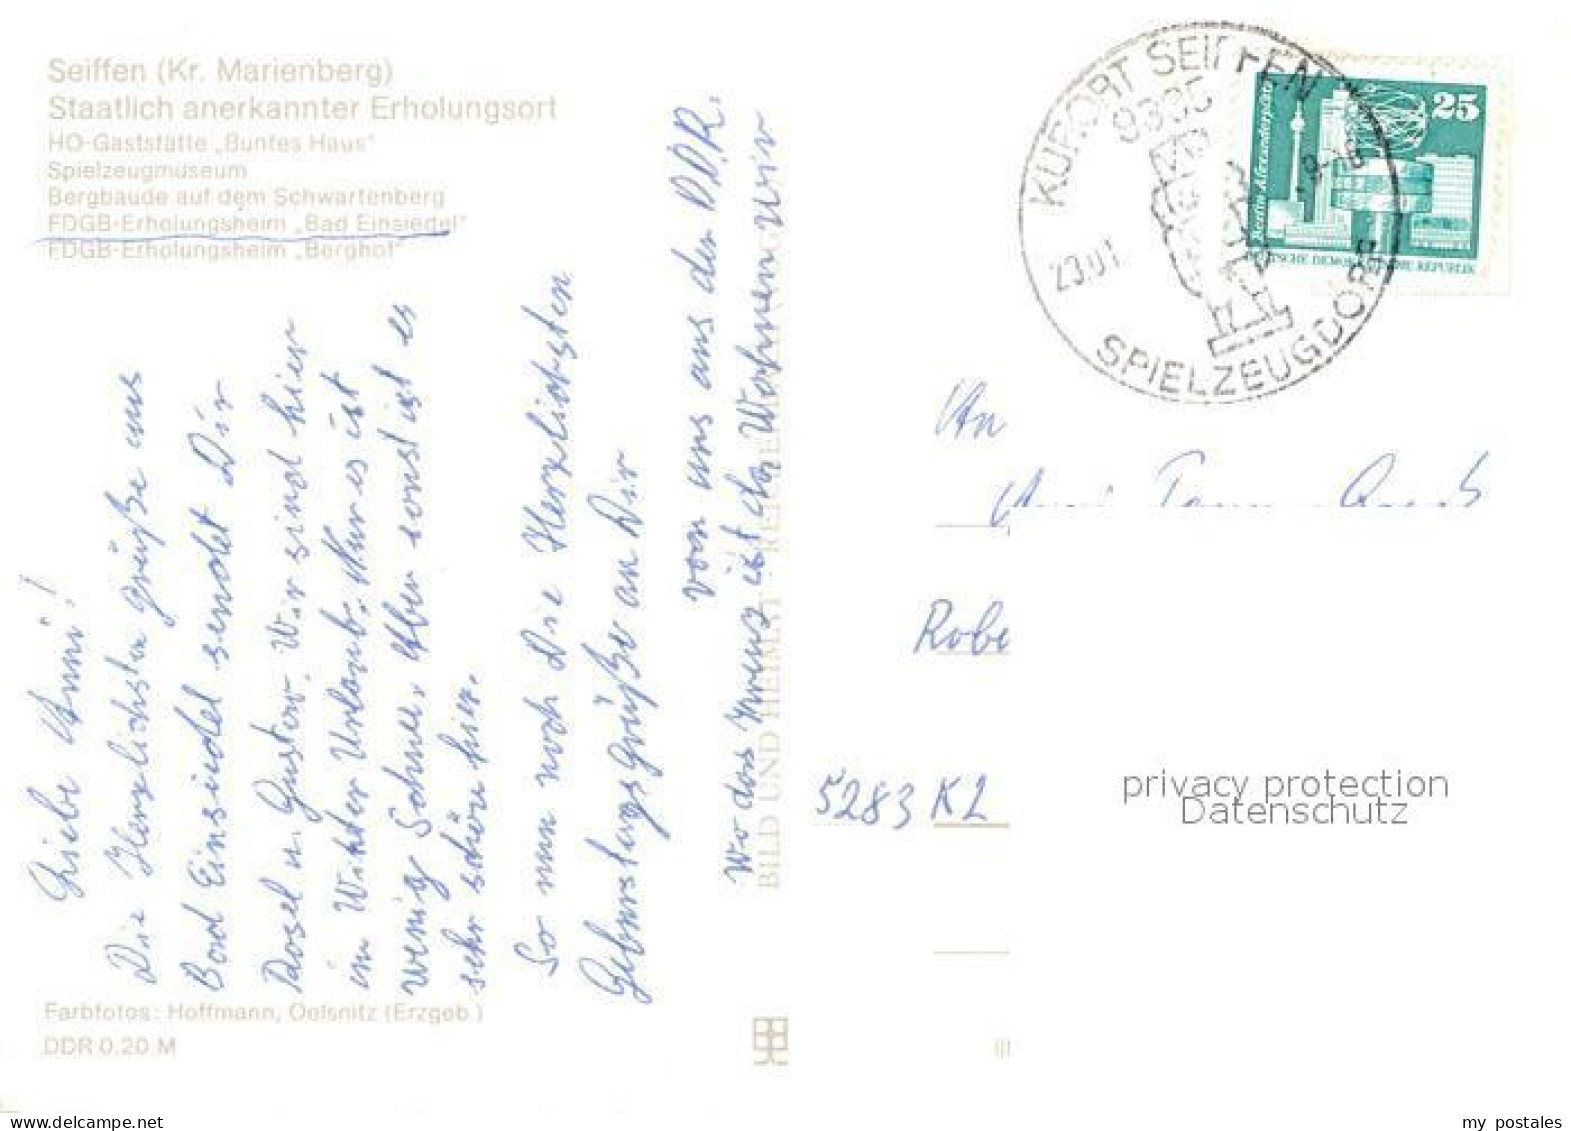 Seiffen (Kr. Marienberg)
Staatlich anerkannter Erholungsort
HO-Gaststätte „Buntes Haus"
Spielzeugmuseum
Bergbaude auf dem Schwartenberg
FDGB-Erholungsheim „Bad Einsiedel"
FDGB-Erholungsheim „Berghof"
Liebe Anni!
Die Herzlichsten Grüße aus
Bad Einsiedel sendet Dir
Rosel u. Gustav. Wir sind hier
im Winter Urlaub. Nur es ist
wenig Schnee. Aber sonst ist es
sehr schön hier.
So nun noch die Herzlichsten
Geburstagsgrüße an Dir
von uns aus der D.D.R.
Wo das Kreuz ist da Wohnen wir
BILD UND HEIMAT REICHENBACH
Farbfotos: Hoffmann, Oelsnitz (Erzgeb.)
DDR 0,20 M
KURORT SEIFFEN
SPIELZEUGDORF
25
Berlin-Alexanderplatz
An
Robe
5283 KL
privacy protection
Datenschutz
my_postales